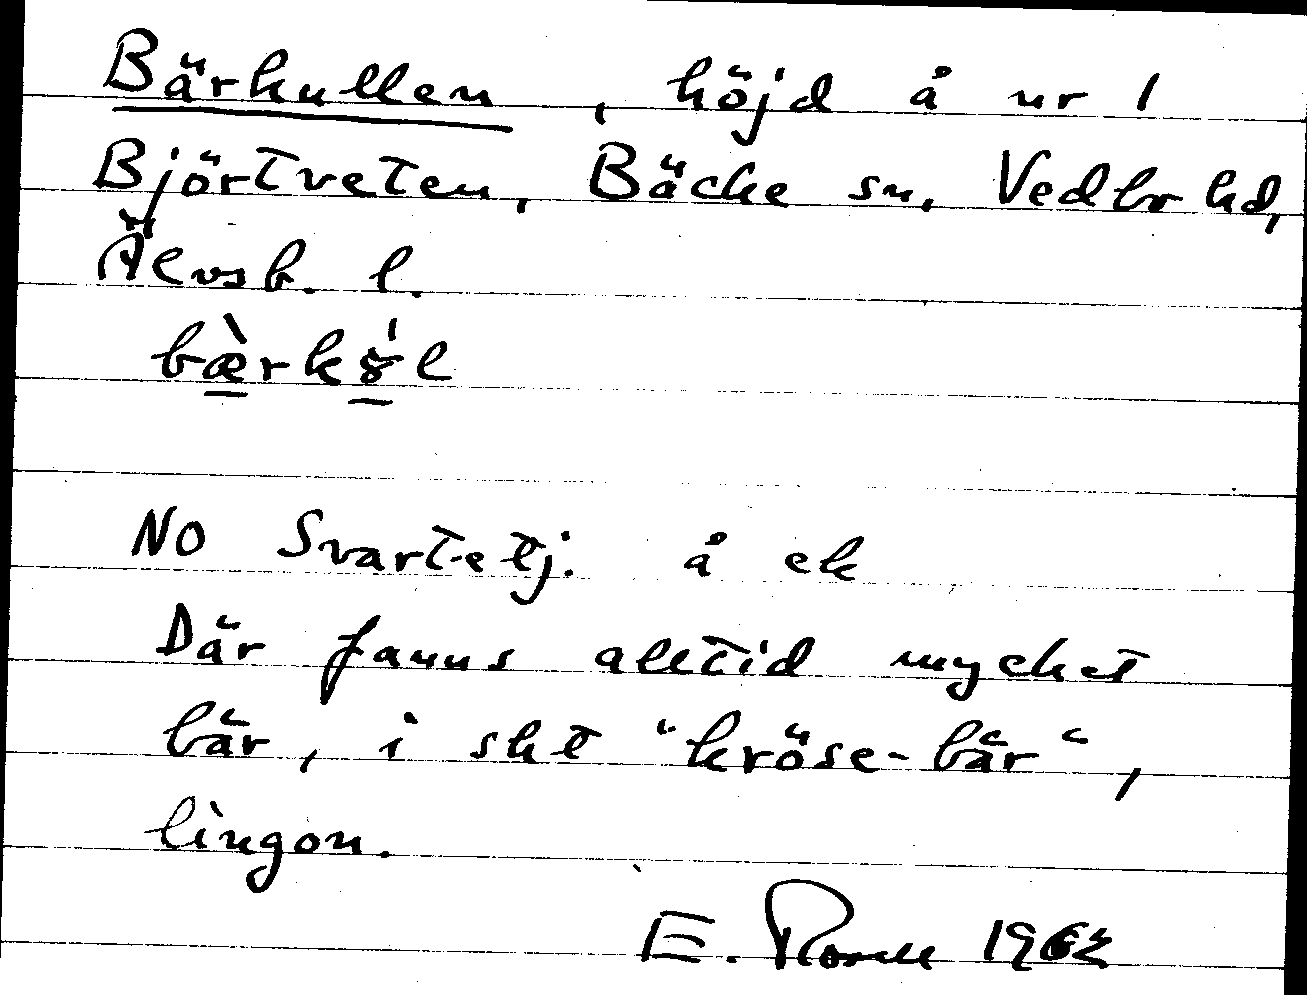 Bärkullen, höjd å nr 1
Björtveten, Bäcke sn, Vedbo hd,
Älvsb. l.
bærk l
NO Svartetj. å ek
Där fanns alltid mycket
bär, i skt "kröse-bär",
lingon.
E. 1962